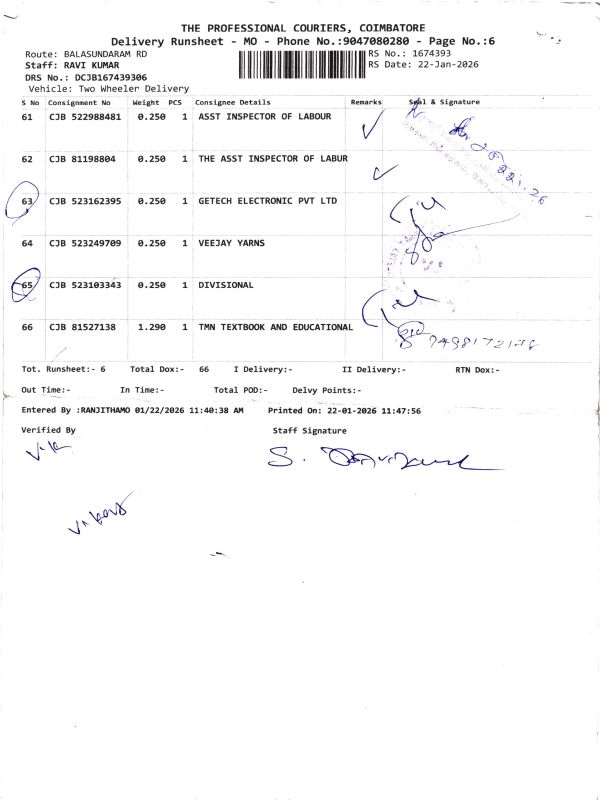 THE PROFESSIONAL COURIERS, COIMBATORE
Delivery Runsheet - MO - Phone No.:9047080280 - Page No.:6
Route: BALASUNDARAM RD RS No.: 1674393
Staff: RAVI KUMAR RS Date: 22-Jan-2026
DRS No.: DCJB167439306
Vehicle: Two Wheeler Delivery
S No Consignment No Weight PCS Consignee Details Remarks Seal & Signature
61 CJB 522988481 0.250 1 ASST INSPECTOR OF LABOUR
62 CJB 81198804 0.250 1 THE ASST INSPECTOR OF LABUR
63 CJB 523162395 0.250 1 GETECH ELECTRONIC PVT LTD
64 CJB 523249709 0.250 1 VEEJAY YARNS
65 CJB 523103343 0.250 1 DIVISIONAL
66 CJB 81527138 1.290 1 TMN TEXTBOOK AND EDUCATIONAL
Tot. Runsheet:- 6 Total Dox:- 66 I Delivery:- II Delivery:- RTN Dox:-
Out Time:- In Time:- Total POD:- Delvy Points:-
Entered By :RANJITHAMO 01/22/2026 11:40:38 AM Printed On: 22-01-2026 11:47:56
Verified By Staff Signature